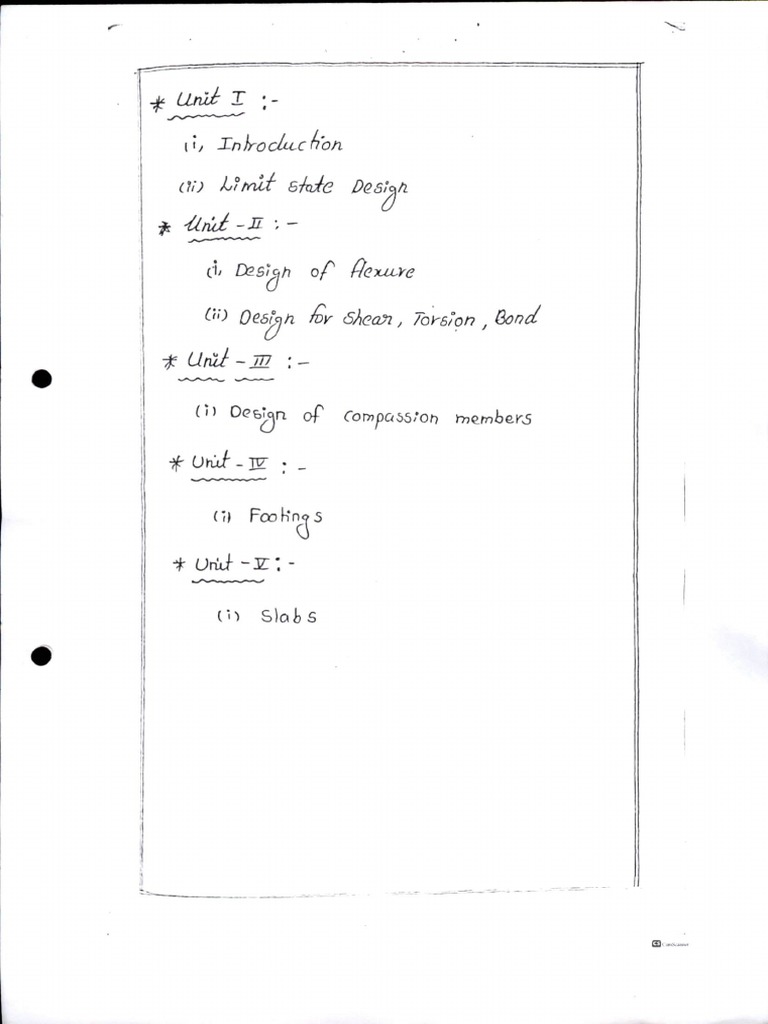 * Unit I :-
(i) Introduction
(ii) Limit state Design
* Unit - II :-
(i) Design of flexure
(ii) Design for Shear, Torsion, Bond
* Unit - III :-
(i) Design of compassion members
* Unit - IV :-
(i) Footings
* Unit - V :-
(i) Slabs
CamScanner